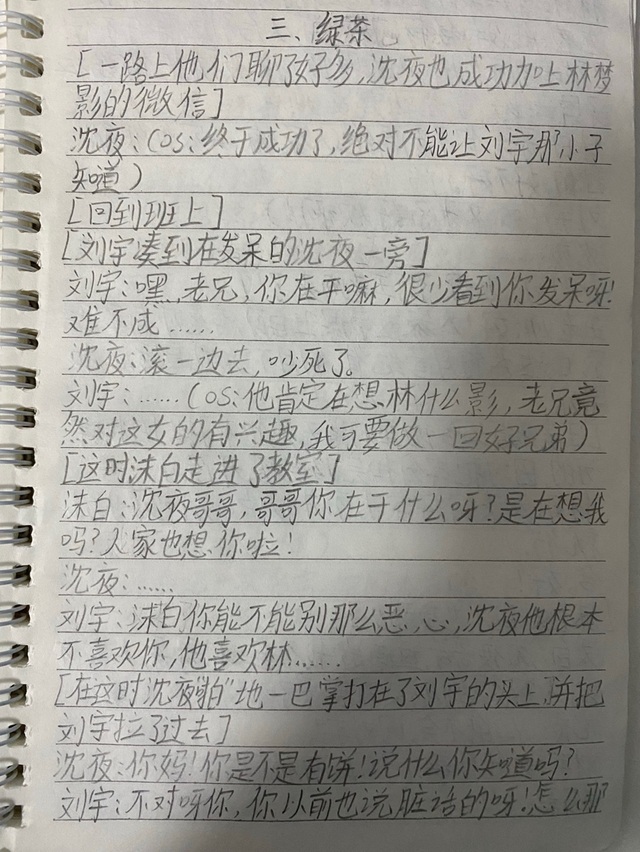 三、绿茶
[一路上他们聊了好多,沈夜也成功加上林梦
影的微信]
沈夜:(OS:终于成功了,绝对不能让刘宇那小子
知道)
[回到班上]
[刘宇凑到在发呆的沈夜一旁]
刘宇:嘿,老兄,你在干嘛,很少看到你发呆呀!
难不成……
沈夜:滚一边去,吵死了。
刘宇:……(OS:他肯定在想林什么影,老兄竟
然对这女的有兴趣,我可要做一回好兄弟)
[这时沫白走进了教室]
沫白:沈夜哥哥,哥哥你在干什么呀?是在想我
吗?人家也想你啦!
沈夜:……
刘宇:沫白你能不能别那么恶心,沈夜他根本
不喜欢你,他喜欢林……
[在这时沈夜"拍"地一巴掌打在了刘宇的头上,并把
刘宇拉了过去]
沈夜:你妈!你是不是有饼!说什么你知道吗?
刘宇:不对呀你,你以前也说脏话的呀!怎么那